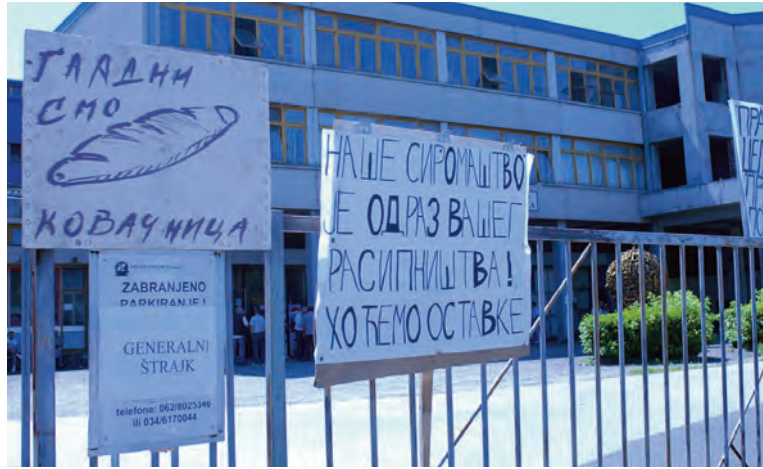 ГЛАДНИ
СМО
КОВАЧНИЦА
ZABRANJENO
PARKIRANJE!
GENERALNI
ŠTRAJK
telefone: 062/8025346
ili 034/6170044
НАШЕ СИРОМАШТВО
ЈЕ ОДРАЗ ВАШЕГ
РАСИПНИШТВА!
ХОЋЕМО ОСТАВКЕ